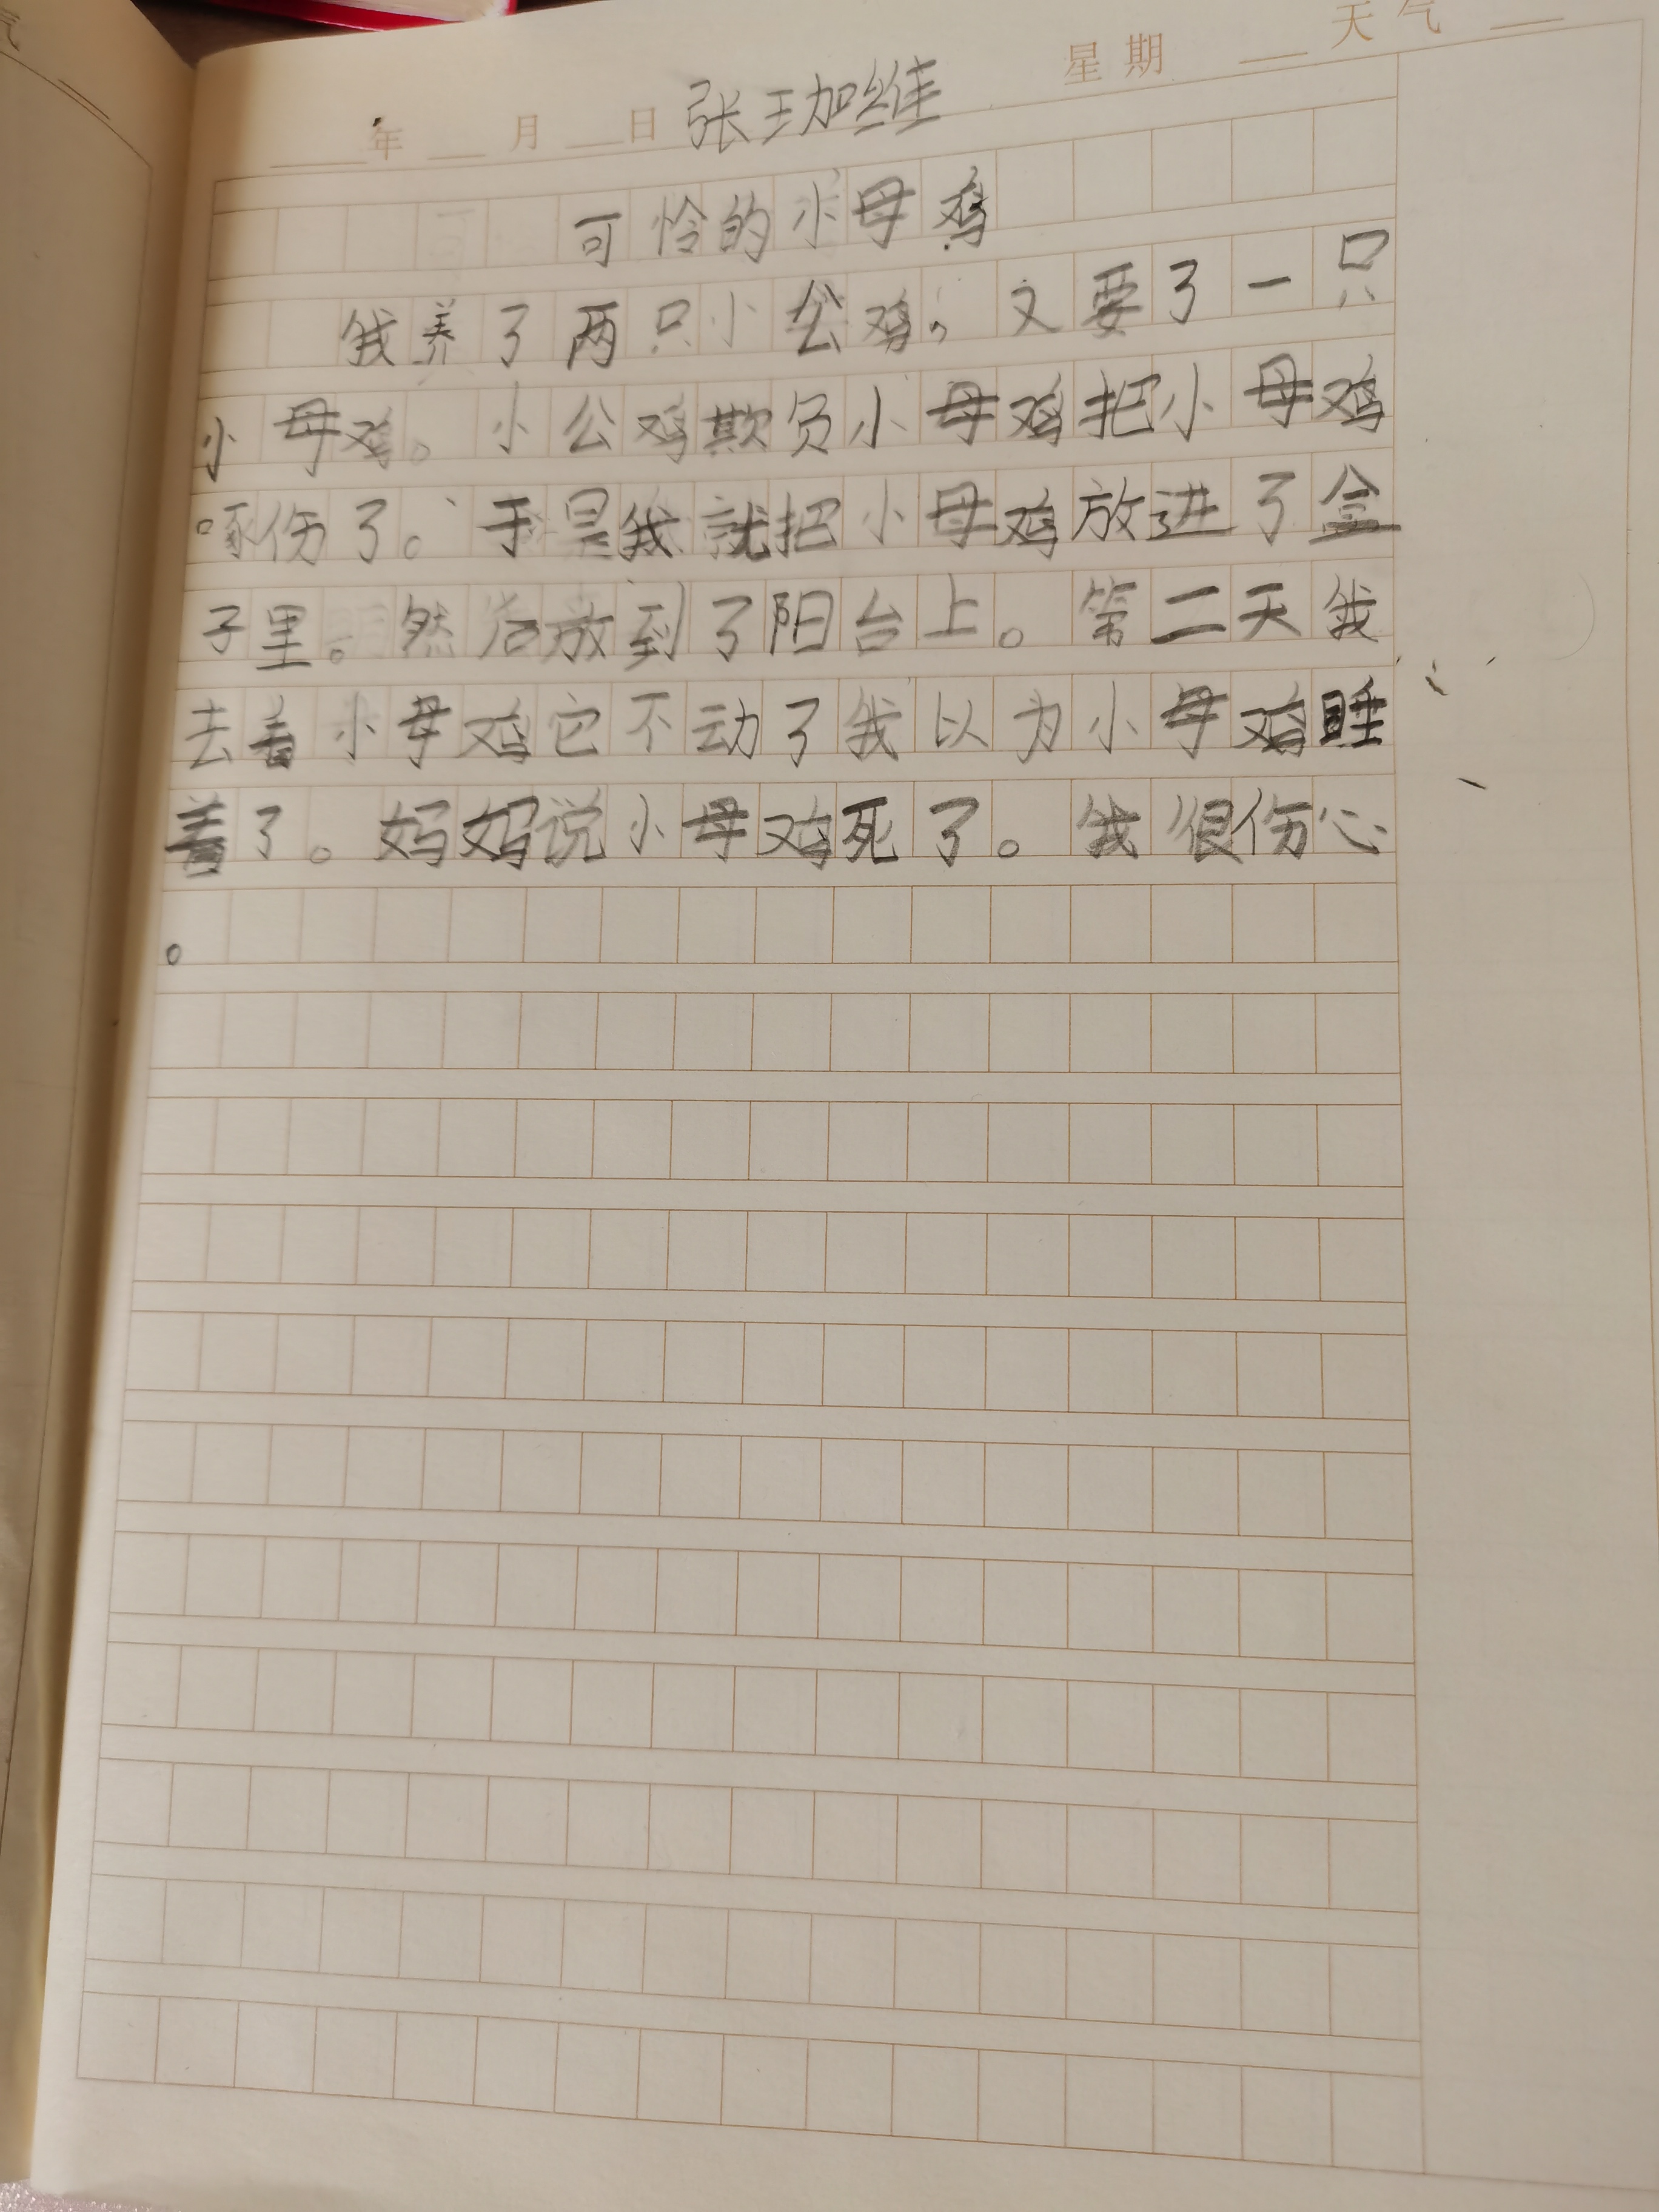 年 月 日 张珈维 星期 天气
可怜的小母鸡
我养了两只小公鸡，又要了一只
小母鸡。小公鸡欺负小母鸡把小母鸡
啄伤了。于是我就把小母鸡放进了盒
子里。然后放到了阳台上。第二天我
去看小母鸡它不动了我以为小母鸡睡
着了。妈妈说小母鸡死了。我很伤心
。